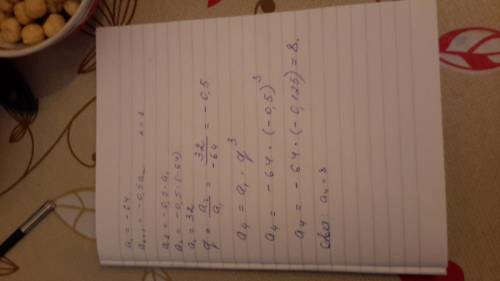 a₁ = -64
aₙ₊₁ = -0,5aₙ n = 1
a₂ = -0,5·a₁
a₂ = -0,5·(-64)
a₂ = 32
q = a₂/a₁ = 32/-64 = -0,5
a₄ = a₁ · q³
a₄ = -64 · (-0,5)³
a₄ = -64 · (-0,125) = 8.
Ответ: a₄ = 8